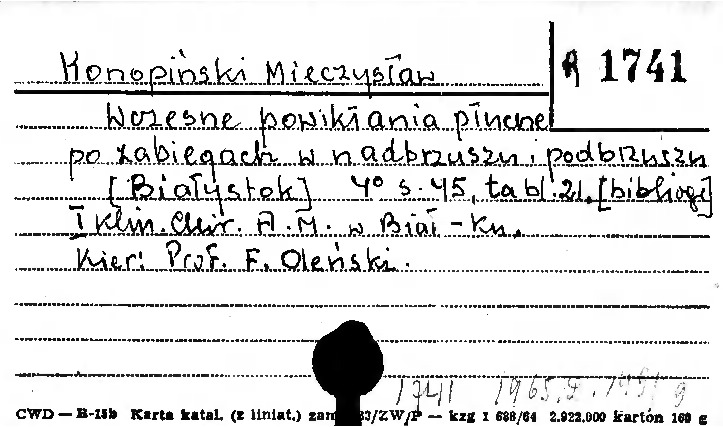 Konopiński Mieczysław
R 1741
Wczesne powikłania płucne
po zabiegach w nadbrzuszu i podbrzuszu
[Białystok] 4° s. 45, tabl. 21, [bibliogr]
I Klin. Chir. A. M. w Biał-ku.
Kier: Prof. F. Oleński.
1741 1965
CWD — B-15b Karta katal. (z liniat.) zam. 33/ZW/P — kzg 1 688/64 2.922.000 kartón 160 g